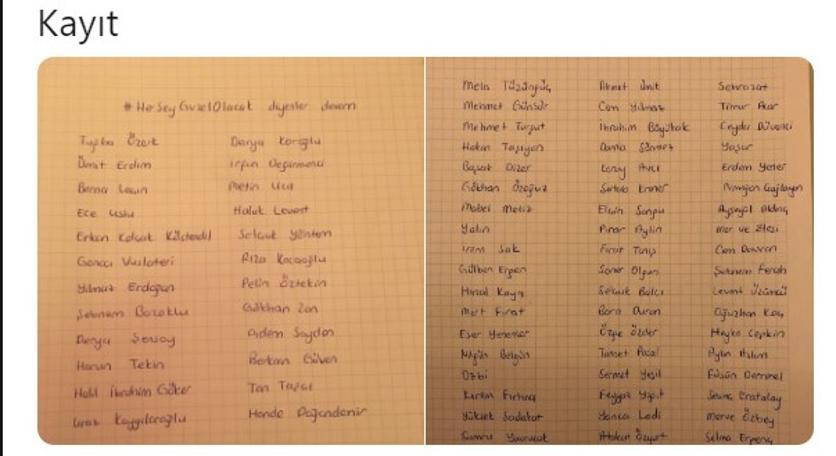 Kayıt
#HerSeyGuzelOlacak diyenler devam
Tuğba Özerk
Ümit Erdim
Berna Laçin
Ece Uslu
Erkan Kolçak Köstendil
Gonca Vuslateri
Yılmaz Erdoğan
Şebnem Bozoklu
Derya Şensoy
Harun Tekin
Halil İbrahim Göker
Uraz Kaygılaroğlu
Derya Köroğlu
İrfan Değirmenci
Metin Uca
Haluk Levent
Selçuk Yöntem
Rıza Kocaoğlu
Pelin Öztekin
Gökhan Zan
Didem Soydan
Berkan Güven
Tan Taşçı
Hande Doğandemir
Melis Tüzüngüç
Mehmet Günsür
Mehmet Turgut
Hakan Taşıyan
Başat Dizer
Gökhan Özoğuz
Mabel Matiz
Yalın
İrem Sak
Gülben Ergen
Hünal Kaya
Mert Fırat
Eser Yenenler
Nilgün Belgün
Özbi
Kerem Fırtına
Yüksek Sadakat
Ahmet Ümit
Cem Yılmaz
İbrahim Büyükak
Damla Sönmez
Koray Avcı
Serhan Erener
Elçin Sangu
Pınar Aylin
Fırat Tanış
Soner Olgun
Selçuk Balcı
Bora Duran
Özge Özder
Tansel Pacal
Sermet Yeşil
Feyyaz Yiğit
Yonca Lodi
Atakan Özyurt
Şehrazat
Timur Acar
Ceyda Düvenci
Yaşar
Erdem Yener
Nurseli
Ayşegül Aldinç
Cem Davran
Şebnem Ferah
Levent Üzümcü
Oğuzhan Koç
Hayko Cepkin
Aylin Aslım
Füsun Demirel
Sevinç Erbulak
Merve Özbey
Selma Ergeç